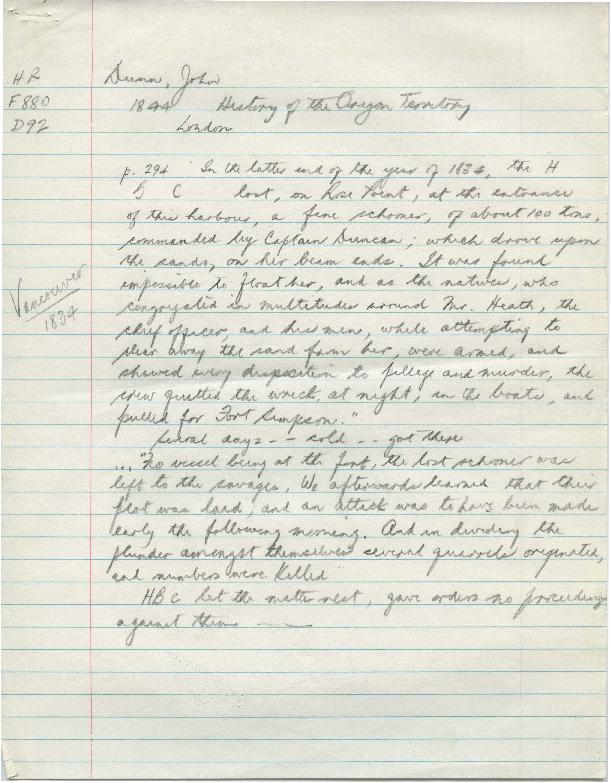 HR
F880
D92
Dunn, John
1844 History of the Oregon Territory
London
p. 294 "In the latter end of the year of 1834, the H
B C lost, on Rose Point, at the entrance
of this harbour, a fine schooner, of about 100 tons,
commanded by Captain Duncan; which drove upon
the sands, on her beam ends. It was found
impossible to float her, and as the natives, who
congregated in multitudes around Mr. Heath, the
chief officer, and his men, while attempting to
clear away the sand from her, were armed, and
showed every disposition to pillage and murder, the
crew quitted the wreck, at night, in the boats, and
pulled for Fort Simpson."
Vancouver
1834
several days -- cold -- got there
... "No vessel being at the fort, the lost schooner was
left to the savages. We afterwards learned that their
plot was laid, and an attack was to have been made
early the following morning. And in dividing the
plunder amongst themselves several quarrels originated,
and numbers were killed
HBC let the matter rest, gave orders no proceedings
against them ——